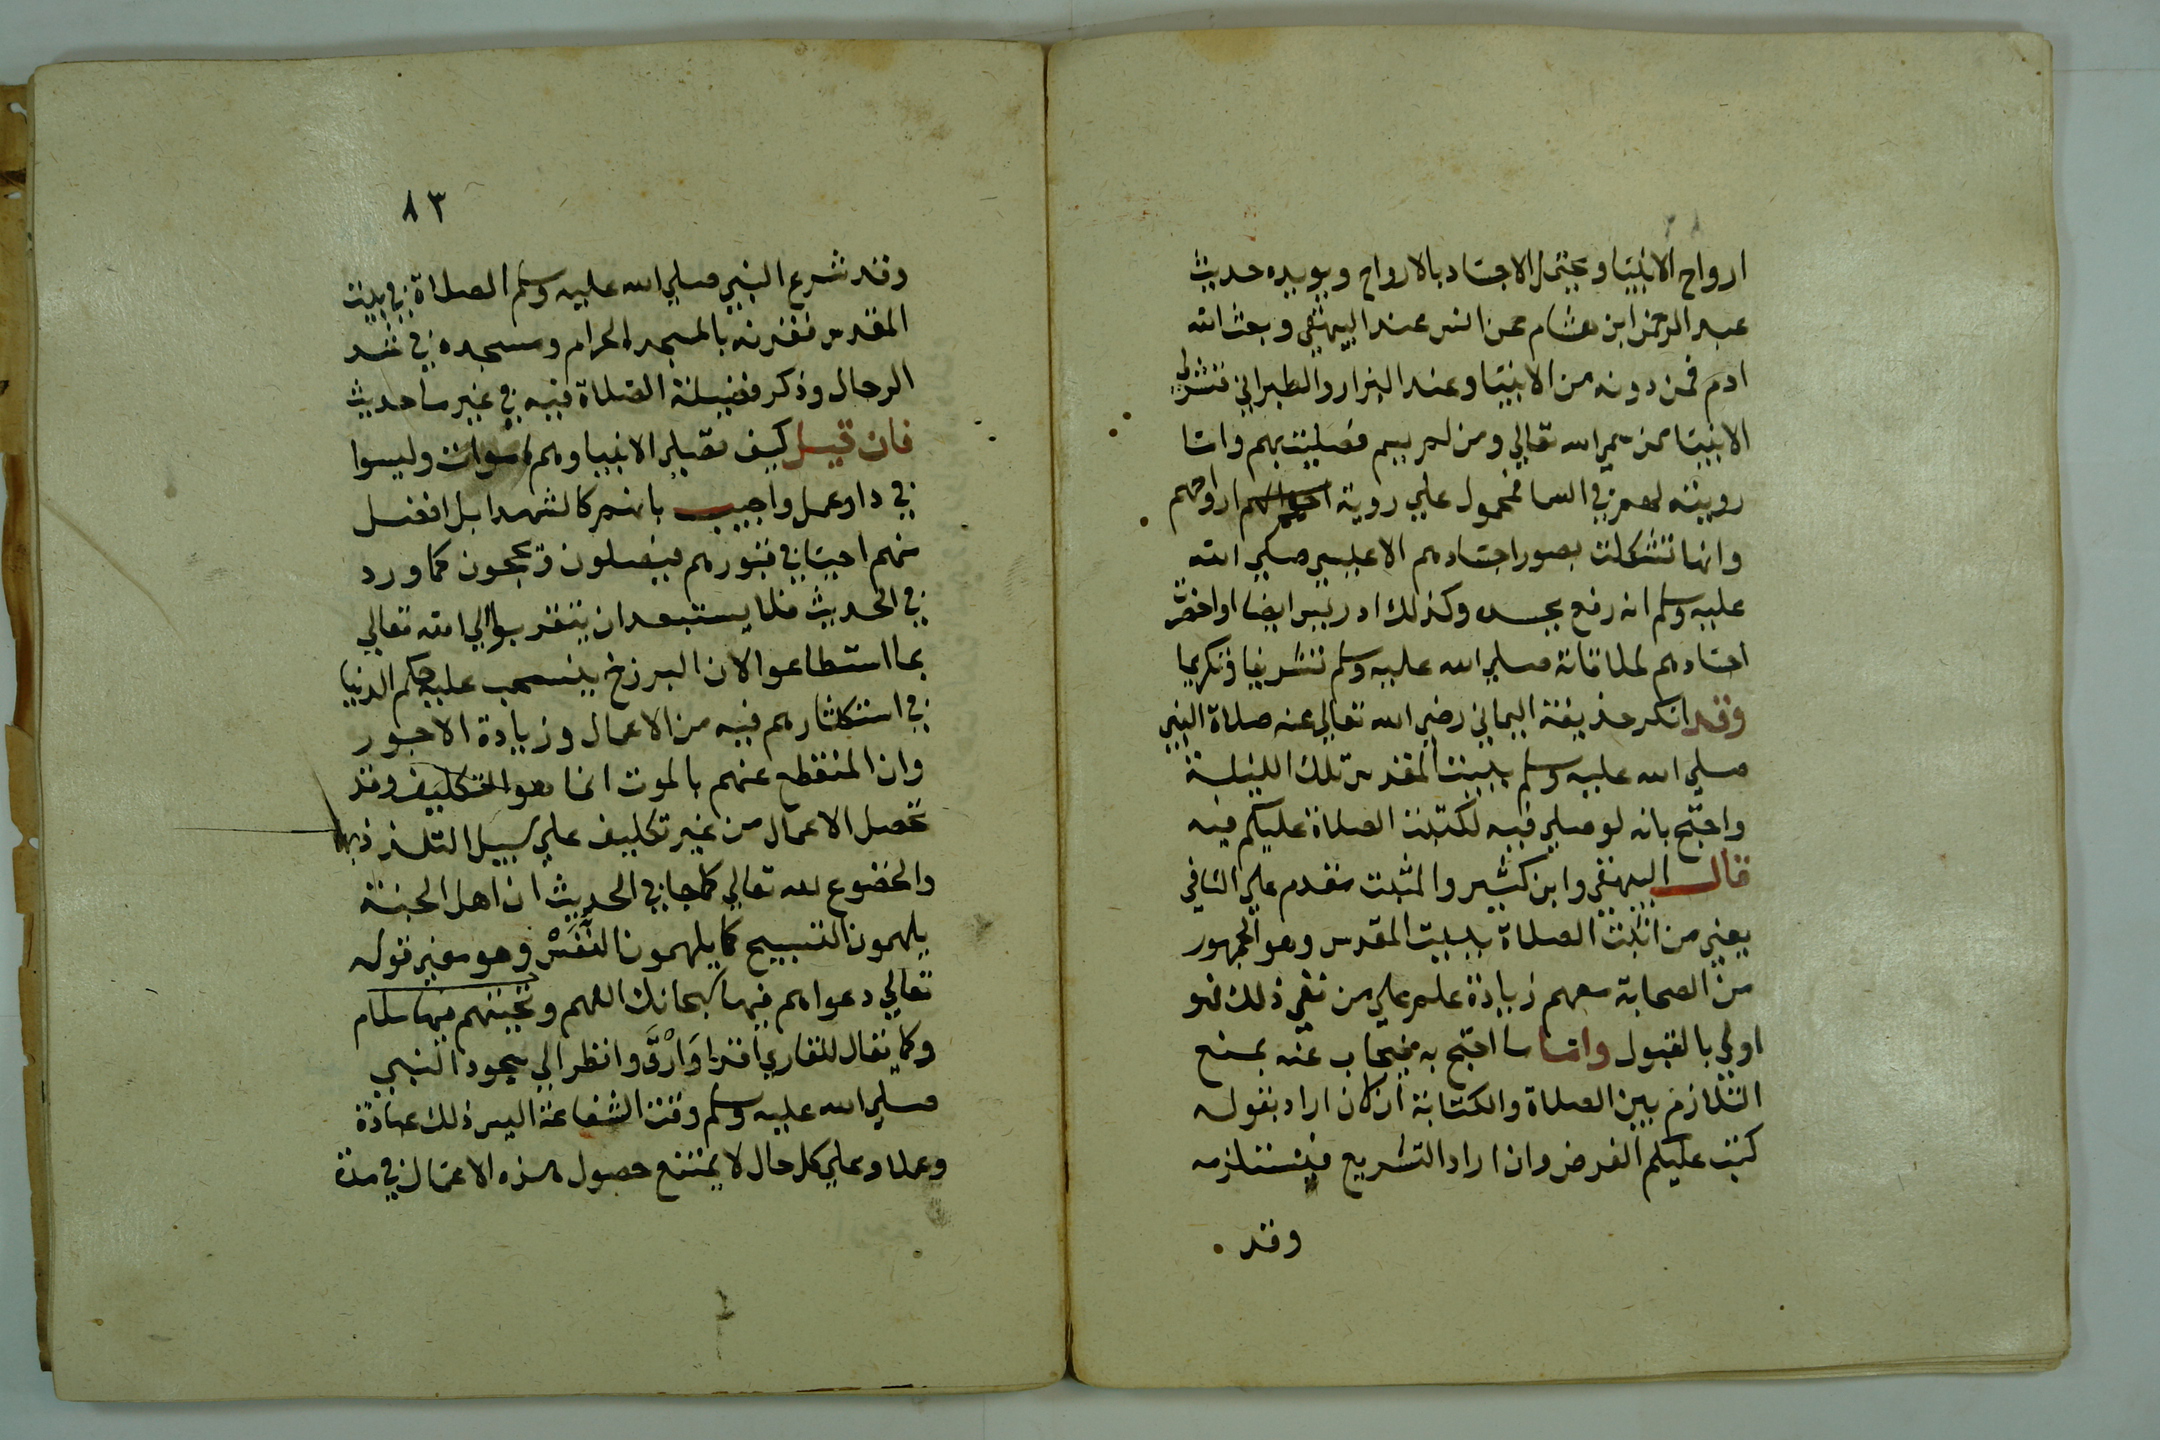 ارواح الانبيا ويحتمل الاجساد بالارواح ويويده حديث
عبد الرحمن ابن هشام عن انس عند البيهقي وبعث الله
ادم فمن دونه من الانبيا وعند البزار والطبراني فنشر لي
الانبيا من سمي الله تعالي ومن لم يسم فصليت بهم واما
رويته لهم في السما فمحمول علي روية ارواحهم
وانها تشكلت بصور اجسادهم الا عيسي صلي الله
عليه وسلم انه رفع بجسده وكذلك ادريس ايضا او احضرت
اجسادهم لملاقاته صلي الله عليه وسلم تشريفا وتكريما
وقد انكر حذيفة اليماني رضي الله تعالي عنه صلاة النبي
صلي الله عليه وسلم ببيت المقدس تلك الليلة
واحتج بانه لو صلي فيه لكتبت الصلاة عليكم فيه
قال البيهقي وابن كثير والمثبت مقدم علي النافي
يعني من اثبت الصلاة ببيت المقدس وهو الجمهور
من الصحابة معهم زيادة علم علي من نفي ذلك فهو
اولي بالقبول واما ما احتج به فيجاب عنه بمنع
التلازم بين الصلاة والكتابة ان كان اراد بقوله
كتبت عليكم الفرض وان اراد التشريع فيستلزمه
وقد
٨٣
وقد شرع النبي صلي الله عليه وسلم الصلاة في بيت
المقدس فقرنه بالمسجد الحرام ومسجده في شد
الرحال وذكر فضيلة الصلاة فيه في غير ما حديث
فان قيل كيف تصلي الانبيا وهم اموات وليسوا
في دار عمل واجيب بانهم كالشهدا بل افضل
منهم احيا في قبورهم فيصلون ويحجون كما ورد
في الحديث فلا يستبعد ان يتقربوا الي الله تعالي
بما استطاعوا لان البرزخ ينسحب عليه حكم الدنيا
في استكثارهم فيه من الاعمال وزيادة الاجور
وان المنقطع عنهم بالموت انما هو التكليف وقد
تحصل الاعمال من غير تكليف علي سبيل التلذذ بها
والخضوع لله تعالي كما جا في الحديث ان اهل الجنة
يلهمون التسبيح كما يلهمون النَّفَسْ وهو معني قوله
تعالي دعواهم فيها سبحانك اللهم وتحيتهم فيها سلام
وكما يقال للقاري اقرا وَارْقَ وانظر الي سجود النبي
صلي الله عليه وسلم وقت الشفاعة اليس ذلك عبادة
وعملا وعلي كل حال لا يمتنع حصول هذه الاعمال في مدة